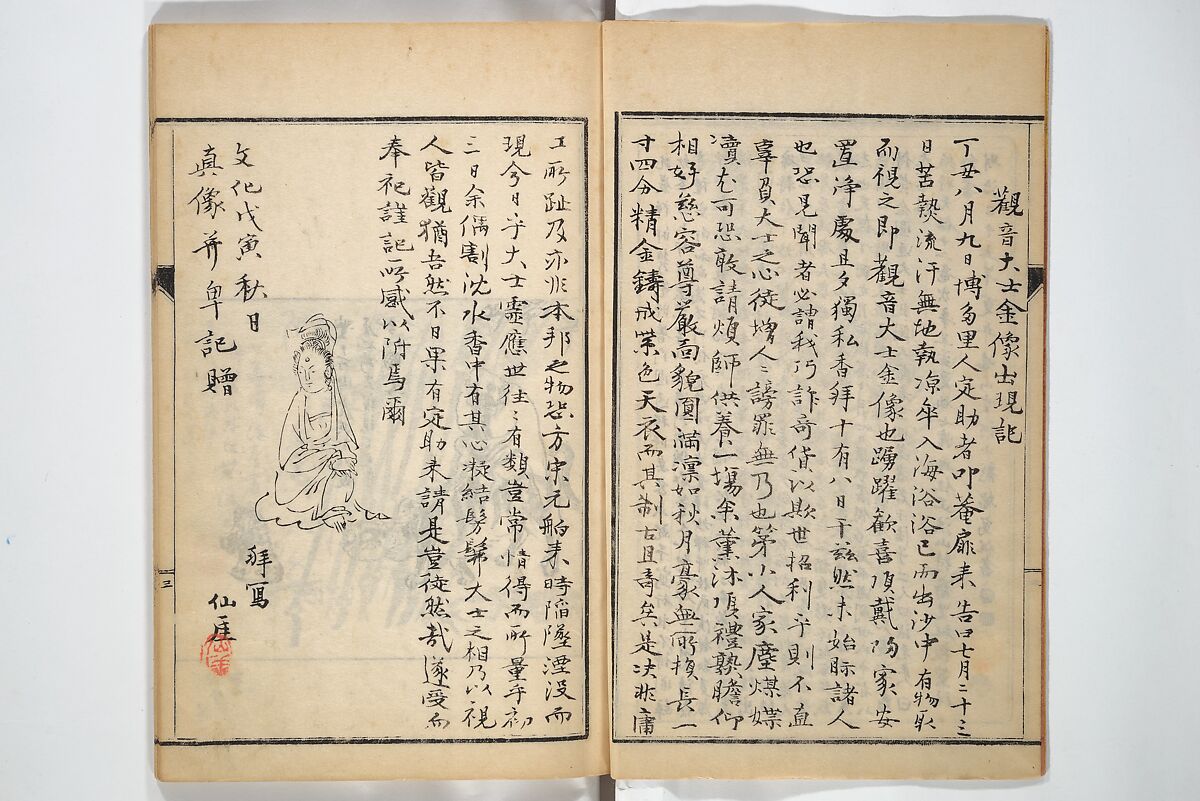 觀音大士金像出現記
丁丑八月九日博多里人定助者叩菴扉来告曰七月二十三
日苦熱流汗無地執凉傘入海浴浴已而出沙中有物取
而視之即觀音大士金像也踴躍歡喜頂戴歸家安
置淨處旦夕獨私香拜十有八日于玆然未始眎諸人
也恐見聞者必謂我巧詐奇貨以欺世招利乎則不直
辜負大士之心徒增人〻謗罪無乃也第小人家塵煤媟
瀆尤可恐敢請煩師供養一場余薰沐頂禮熟瞻仰
相好慈容尊嚴面貌圓滿凛如秋月豪無所損長一
寸四分精金鑄成紫色天衣而其制古且奇矣是决非庸
工所趾及亦非本邦之物恐方宋元舶来時陷墜湮没而
現今日乎大士靈應世往〻有類豈常情得而所量乎初
三日余偶割沈水香中有其心凝結髣髴大士之相乃以視
人皆觀猶吾然不日果有定助来請是豈徒然哉遂受而
奉祀謹記所感以附焉爾
文化戊寅秋日
真像并卑記贈
拜寫
仙厓
三